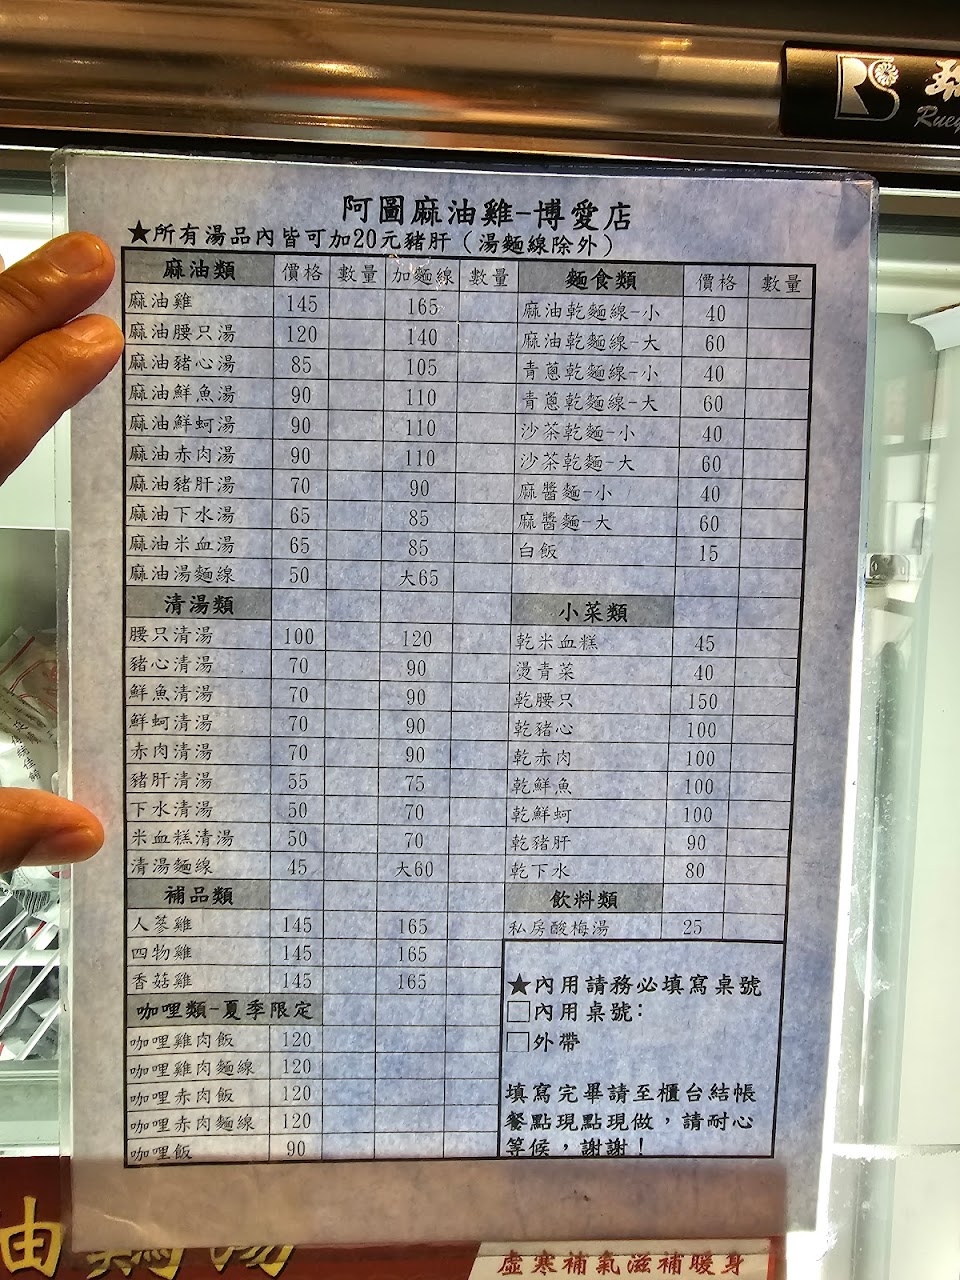 RS
Ruey
阿圖麻油雞-博愛店
★所有湯品內皆可加20元豬肝（湯麵線除外）
麻油類 價格 數量 加麵線 數量
麻油雞 145 165
麻油腰只湯 120 140
麻油豬心湯 85 105
麻油鮮魚湯 90 110
麻油鮮蚵湯 90 110
麻油赤肉湯 90 110
麻油豬肝湯 70 90
麻油下水湯 65 85
麻油米血湯 65 85
麻油湯麵線 50 大65
清湯類
腰只清湯 100 120
豬心清湯 70 90
鮮魚清湯 70 90
鮮蚵清湯 70 90
赤肉清湯 70 90
豬肝清湯 55 75
下水清湯 50 70
米血糕清湯 50 70
清湯麵線 45 大60
補品類
人蔘雞 145 165
四物雞 145 165
香菇雞 145 165
咖哩類-夏季限定
咖哩雞肉飯 120
咖哩雞肉麵線 120
咖哩赤肉飯 120
咖哩赤肉麵線 120
咖哩飯 90
麵食類 價格 數量
麻油乾麵線-小 40
麻油乾麵線-大 60
青蔥乾麵線-小 40
青蔥乾麵線-大 60
沙茶乾麵-小 40
沙茶乾麵-大 60
麻醬麵-小 40
麻醬麵-大 60
白飯 15
小菜類
乾米血糕 45
燙青菜 40
乾腰只 150
乾豬心 100
乾赤肉 100
乾鮮魚 100
乾鮮蚵 100
乾豬肝 90
乾下水 80
飲料類
私房酸梅湯 25
★內用請務必填寫桌號
□內用桌號：
□外帶
填寫完畢請至櫃台結帳
餐點現點現做，請耐心
等候，謝謝！
虛寒補氣滋補暖身